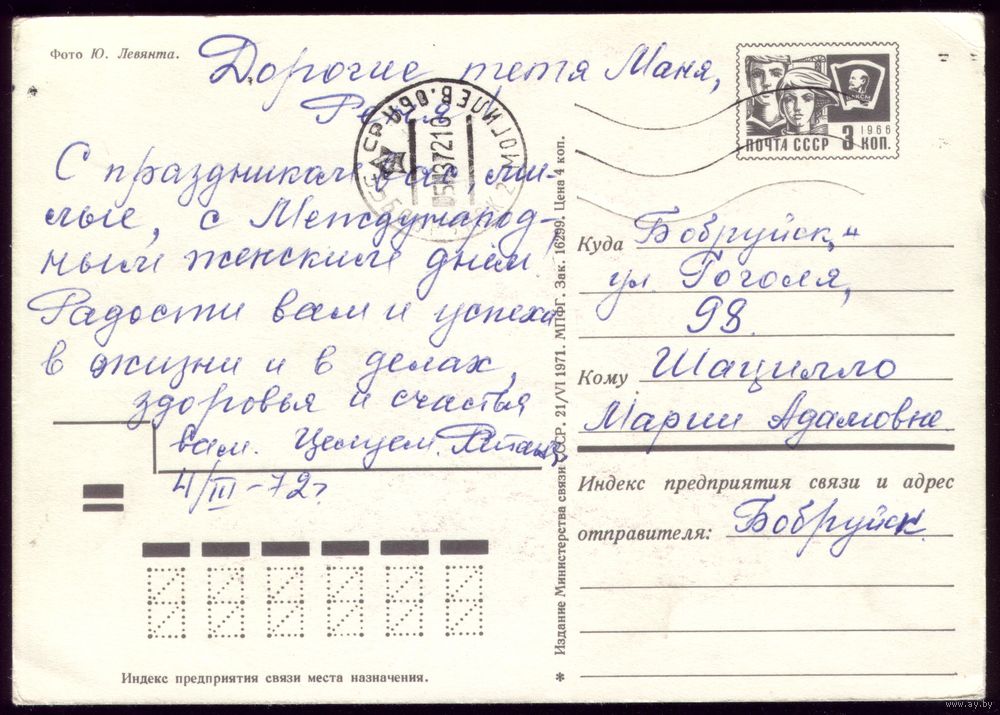 Фото Ю. Левянта.
Дорогие тетя Маня,
С праздником вас, ми-
лые, с Международ-
ным женским днем!
Радости вам и успеха
в жизни и в делах,
здоровья и счастья
вам. Целуем.
4/III-72г
Индекс предприятия связи места назначения.
* Издание Министерства связи СССР. 21/VI 1971. МПФГ. Зак. 16299. Цена 4 коп.
ВЛКСМ
1966
ПОЧТА СССР 3 КОП.
Куда Бобруйск,
ул. Гоголя,
98.
Кому Шацилло
Марии Адамовне
Индекс предприятия связи и адрес
отправителя: Бобруйск.
www.ay.by